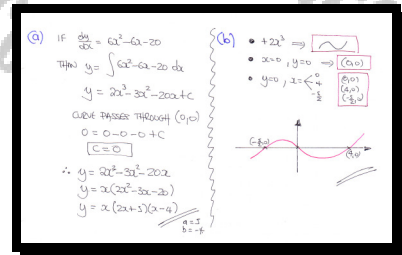 (a) IF dy/dx = 6x²-6x-20
THEN y = ∫ 6x²-6x-20 dx
y = 2x³-3x²-20x+C
CURVE PASSES THROUGH (0,0)
0 = 0-0-0+C
C=0
∴ y = 2x³-3x²-20x
y = x(2x²-3x-20)
y = x(2x+5)(x-4)
a=5
b=-4
(b) • +2x³ ⇒
• x=0, y=0 ⇒ (0,0)
• y=0, x= < 0 4 -5/2
(0,0)
(4,0)
(-5/2,0)
(-5/2,0)
(4,0)